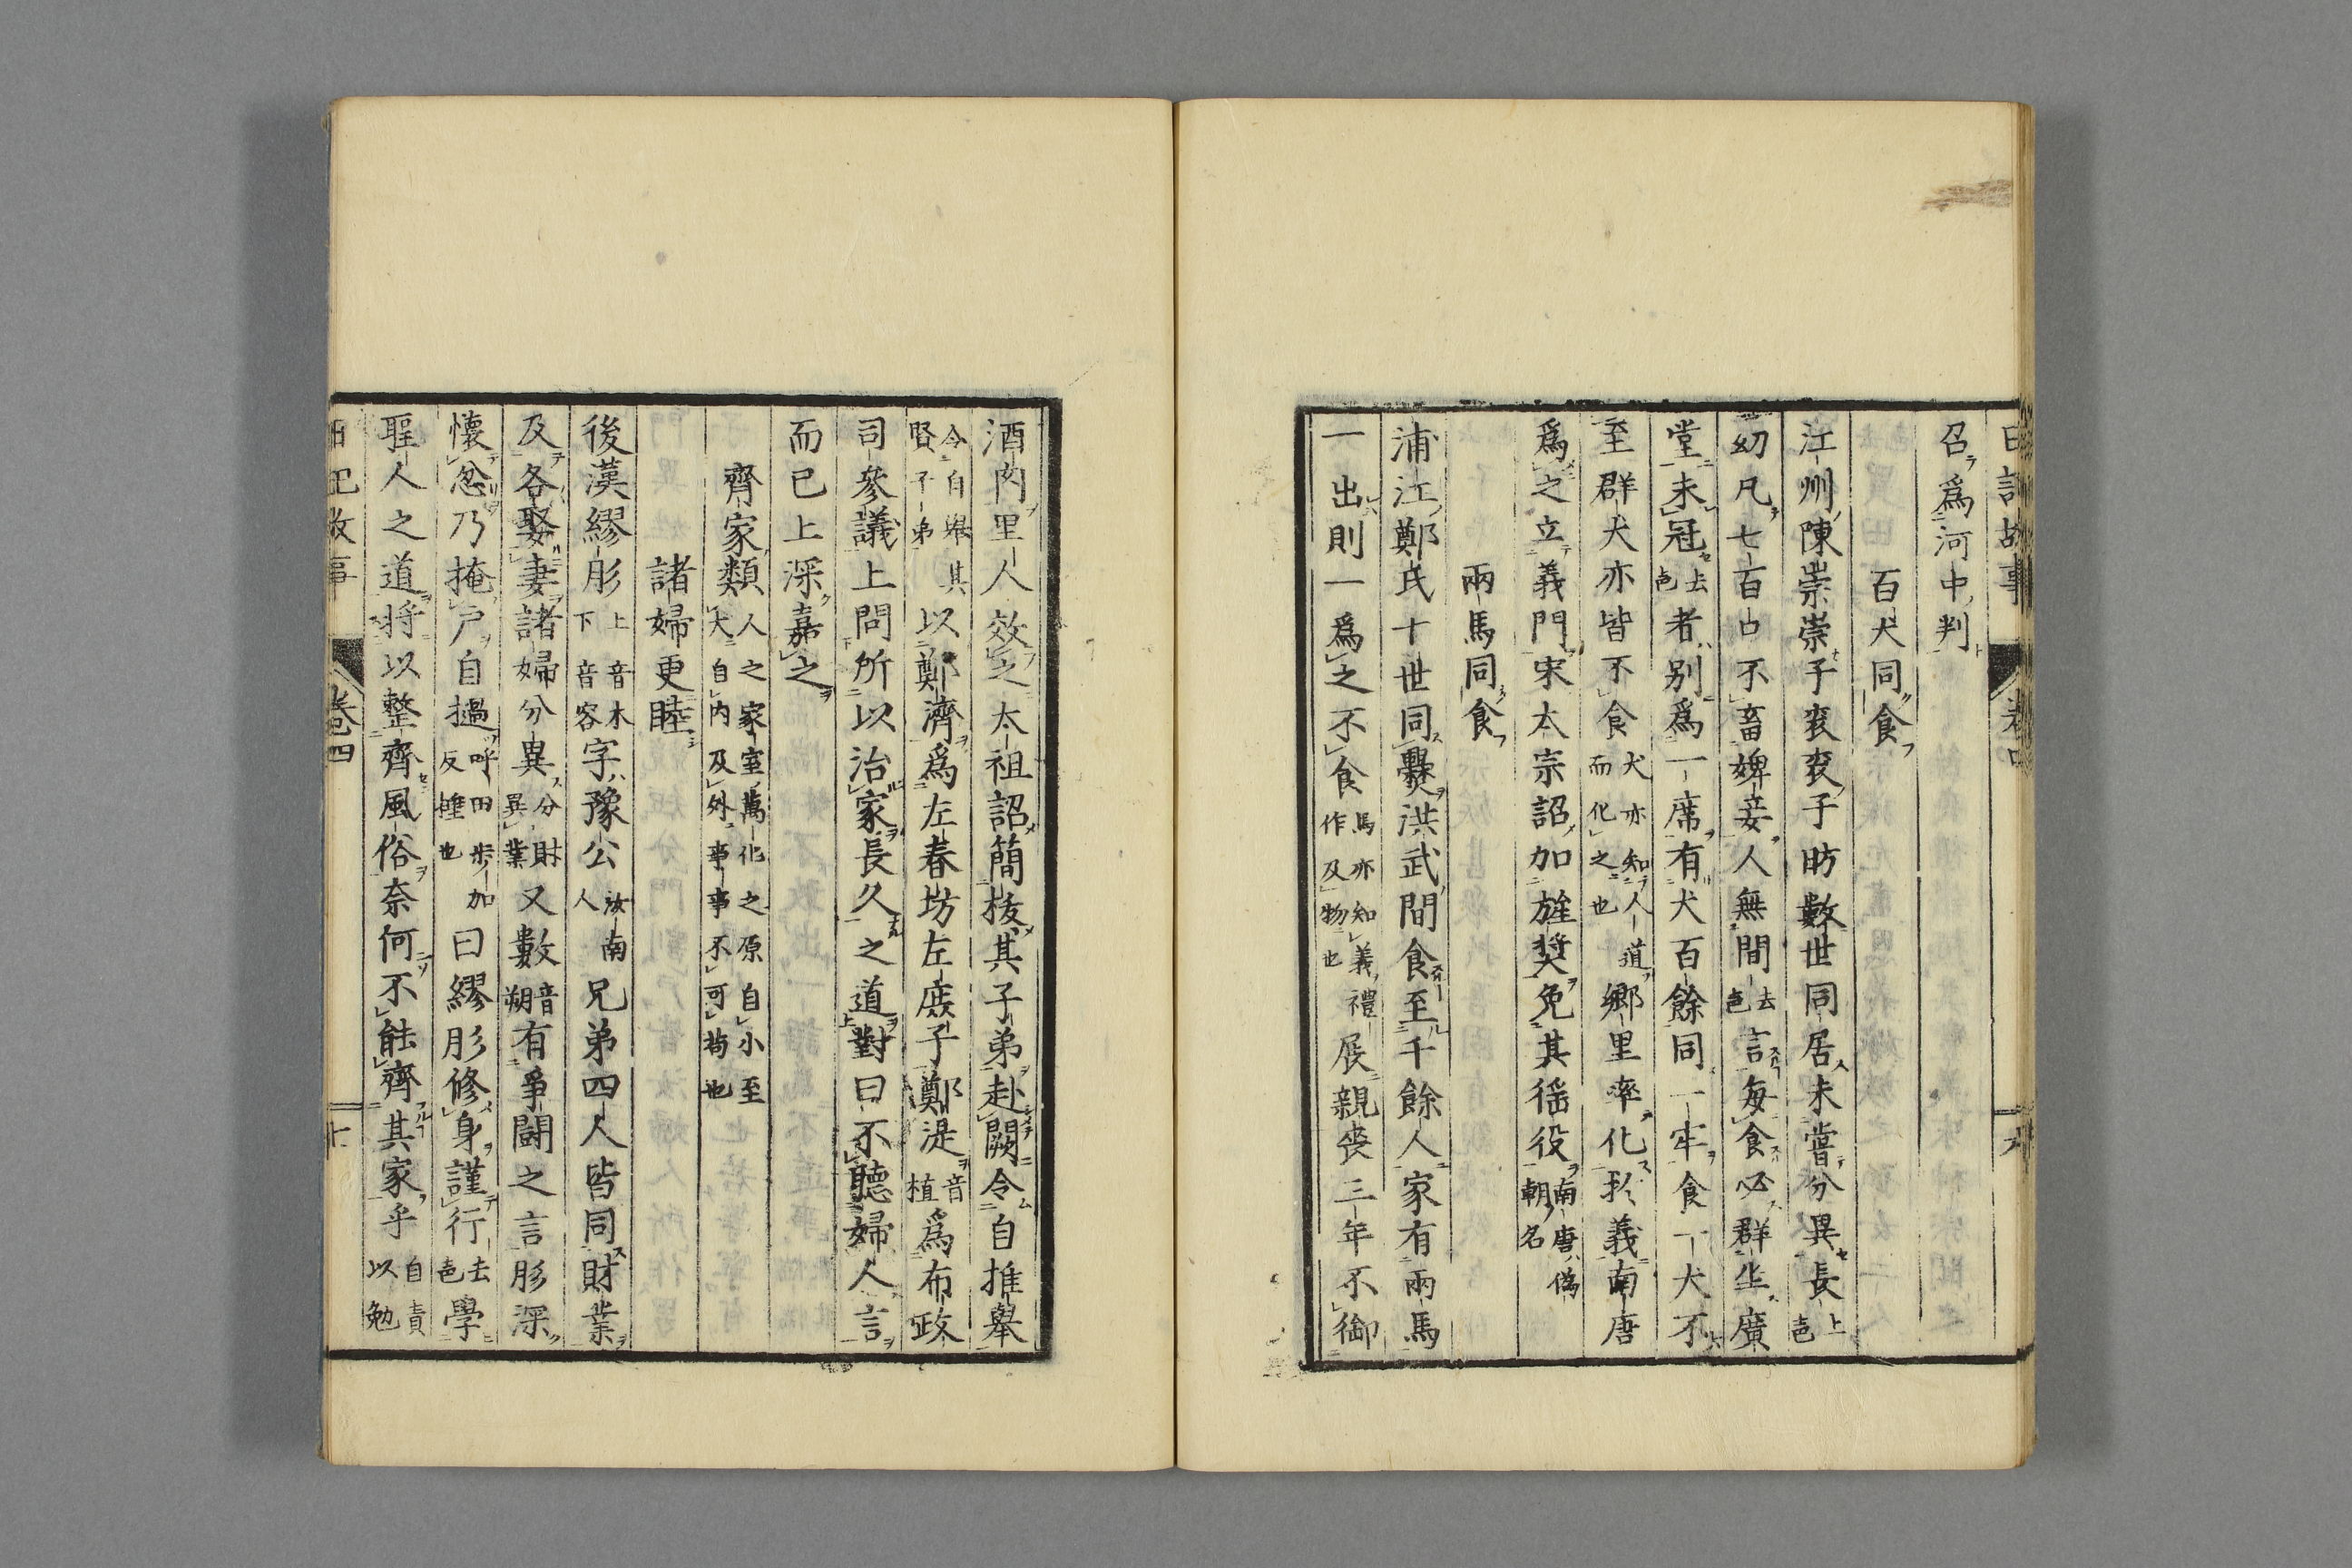 日記故事 卷四 九
召為河中判
百犬同食
江州陳崇崇子袞袞子昉數世同居未嘗分異長上
声
幼凡七百口不畜婢妾人無間去
声言每食必群坐廣
堂未冠去
声者别為一席有犬百餘同一牢食一犬不
至群犬亦皆不食犬亦知人道
而化之也鄉里率化於義南唐
為之立義門宋太宗詔加旌奬免其徭役南唐偽
朝名
兩馬同食
浦江鄭氏十世同爨洪武間食至千餘人家有兩馬
一出則一為之不食馬亦知義禮
作及物也展親喪三年不御
酒肉里人效之太祖詔簡拔其子弟赴闕令自推舉
令自舉其
賢子弟以鄭濟為左春坊左庶子鄭湜音
植為布政
司參議上問所以治家長久之道對曰不聽婦人言
而已上深嘉之
齊家類人之家室萬化之原自小至
大自内及外事事不可苟也
諸婦更睦
後漢繆肜上音木
下音容字豫公汝南
人兄弟四人皆同財業
及各娶妻諸婦分異分財
異業又數音
朔有爭鬪之言肜深
懷忿乃掩户自撾呼田
反棰也步加曰繆肜修身謹行去
声學
聖人之道將以整齊風俗奈何不能齊其家乎自責
以勉
日記故事 卷四 十